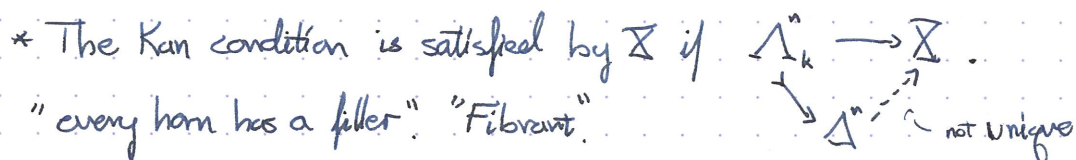 * The Kan condition is satisfied by X if Λⁿₖ → X.
"every horn has a filler". "Fibrant". Δⁿ not unique